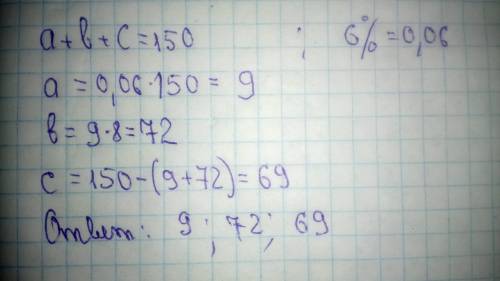 a + b + c = 150 ; 6% = 0,06
a = 0,06 · 150 = 9
b = 9 · 8 = 72
c = 150 - (9 + 72) = 69
Ответ: 9 ; 72 ; 69